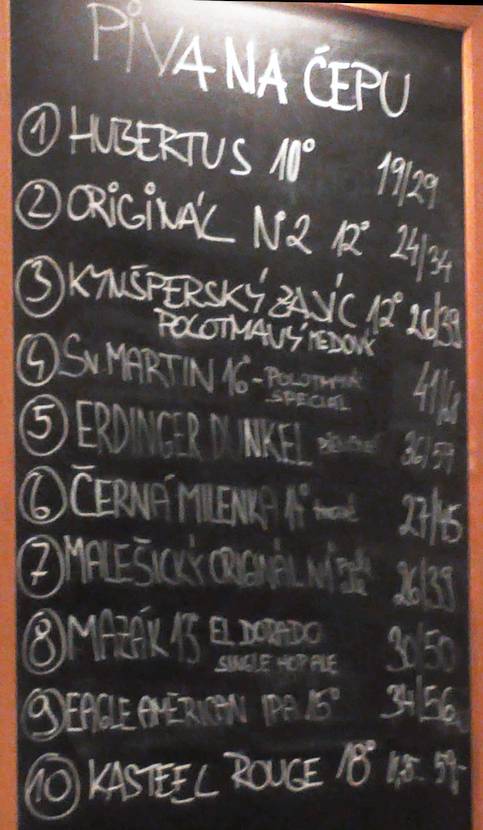 PIVA NA ČEPU
1 HUBERTUS 10° 19/29
2 ORIGINÁL N°2 12° 24/34
3 KYNŠPERSKÝ ZAJÍC 12° 26/39
POLOTMAVÝ MEDOVÝ
4 SV. MARTIN 16° - POLOTMAVÝ 41/
SPECIAL
5 ERDINGER DUNKEL 36/59
6 ČERNÁ MILENKA 27/45
7 MALEŠICKÝ ORIGINÁL 26/39
8 MAZÁK 13 EL DORADO 30/50
SINGLE HOP ALE
9 EAGLE AMERICAN IPA 15° 34/56
10 KASTEEL ROUGE 18° 59,-